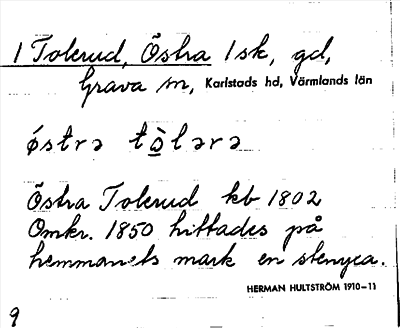 1 Tolerud, Östra 1 sk, gd,
Grava sn, Karlstads hd, Värmlands län
östrə tòlərə
Östra Tolerud kb 1802
Omkr. 1850 hittades på
hemmanets mark en stenyxa.
HERMAN HULTSTRÖM 1910-11
9